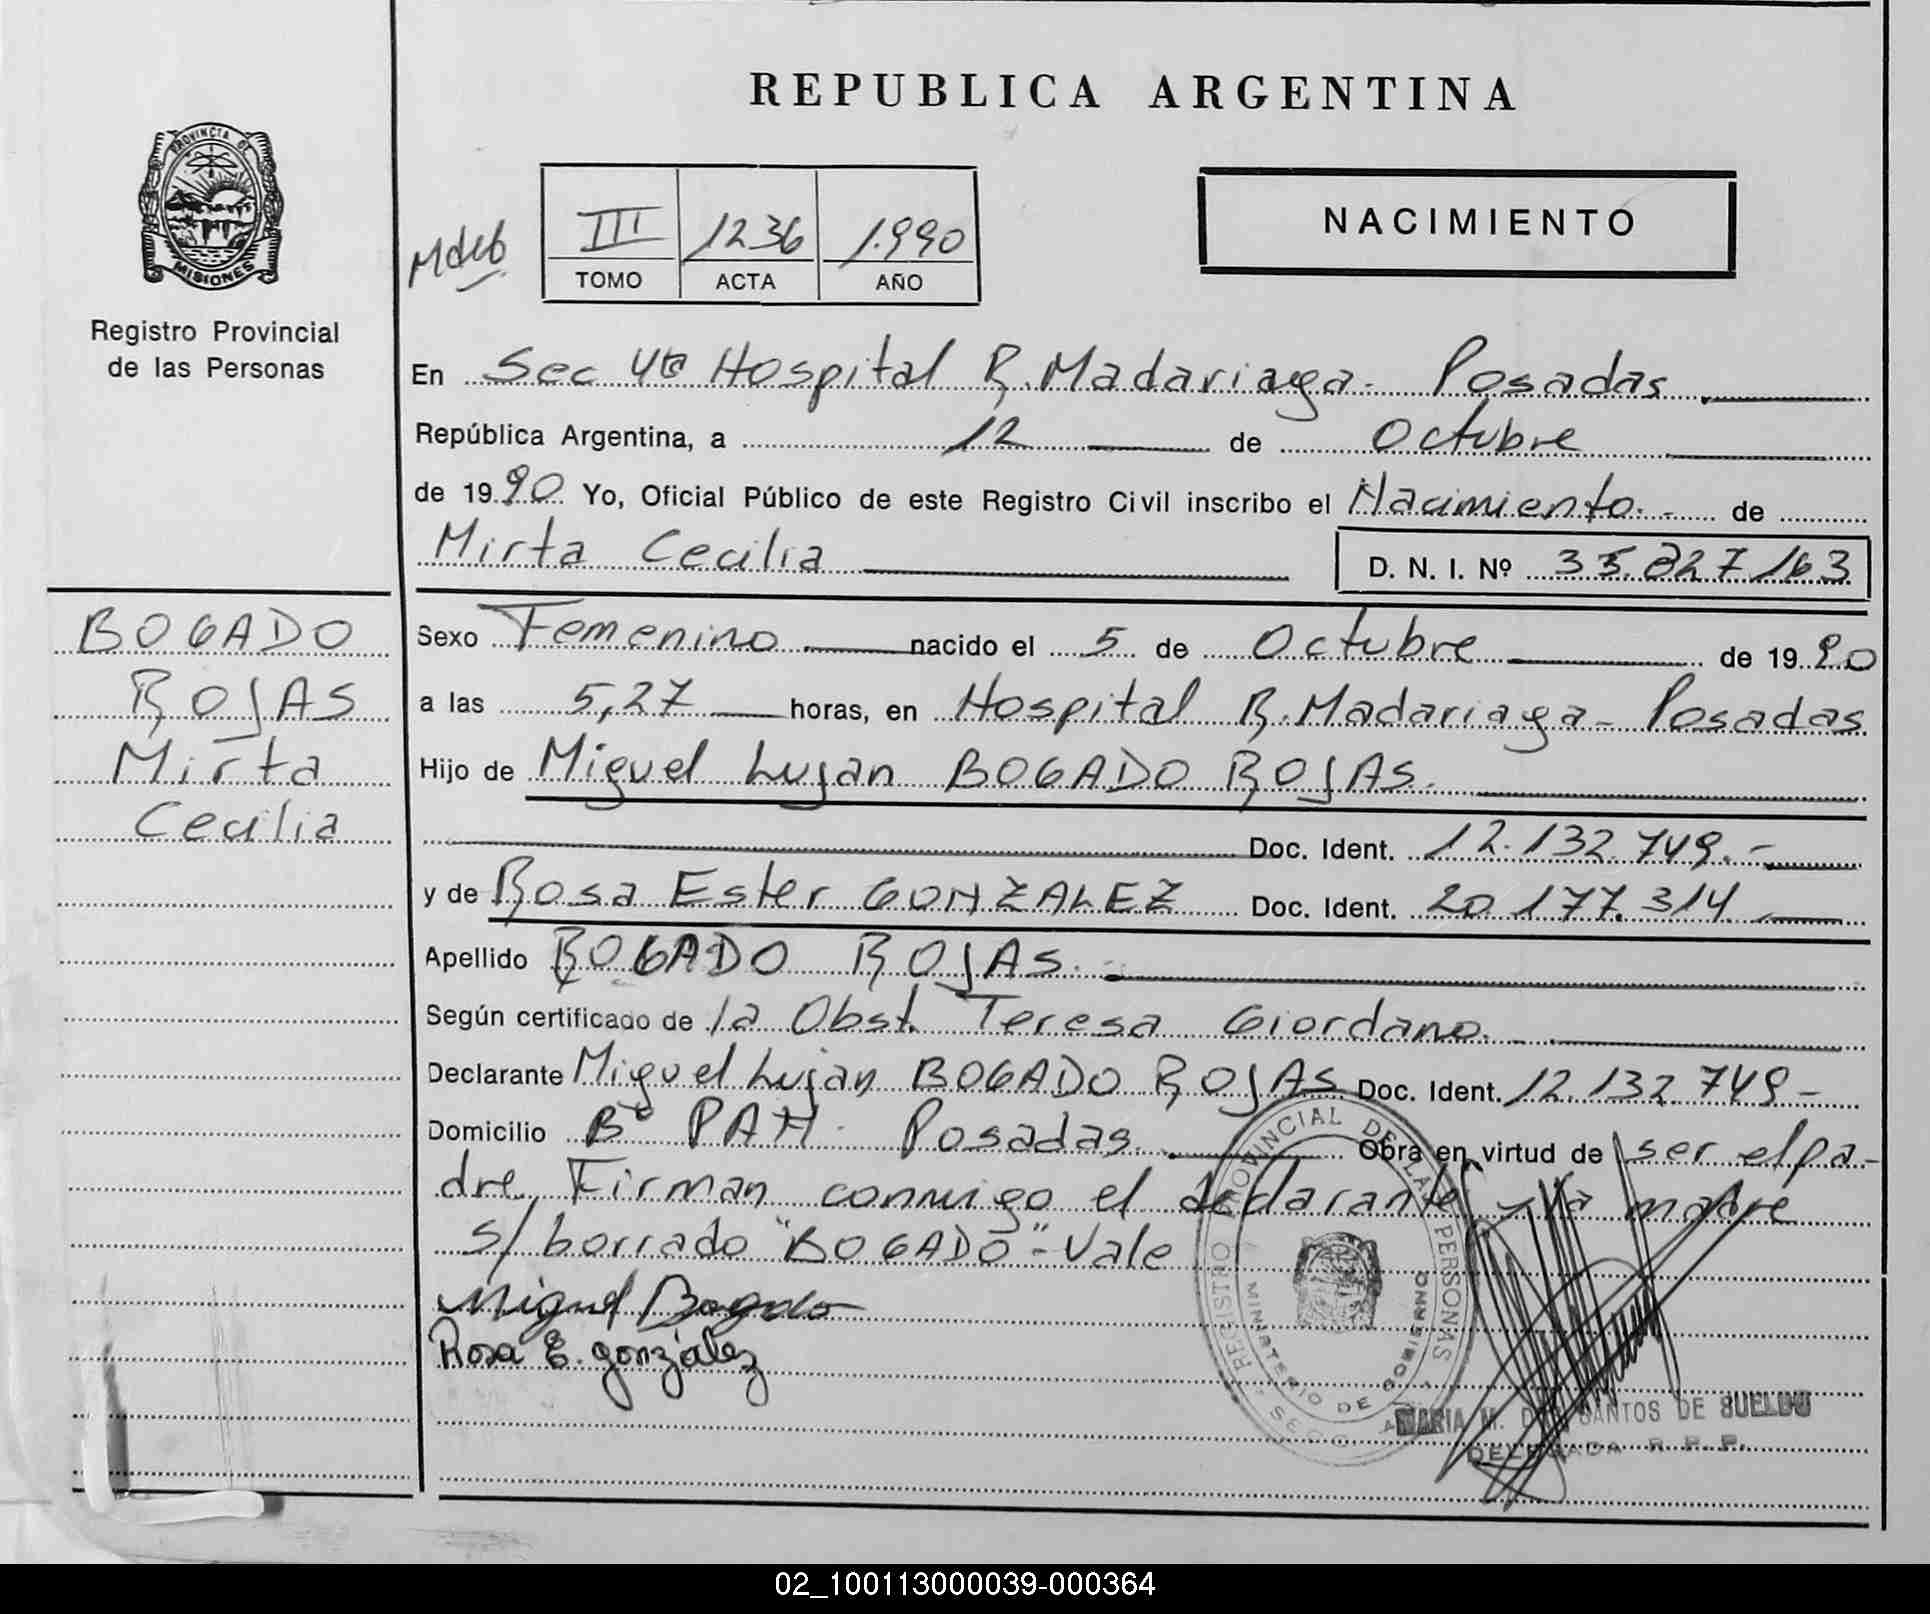 REPUBLICA ARGENTINA
PROVINCIA DE
MISIONES
Registro Provincial
de las Personas
III 1236 1.990
TOMO ACTA AÑO
NACIMIENTO
En Sec 4ta Hospital R. Madariaga - Posadas
República Argentina, a 12 de Octubre
de 1990 Yo, Oficial Público de este Registro Civil inscribo el Nacimiento.- de
Mirta Cecilia D. N. I. Nº 35.827163
BOGADO
ROJAS
Mirta
Cecilia
Sexo Femenino nacido el 5 de Octubre de 1990
a las 5,27 horas, en Hospital R. Madariaga - Posadas
Hijo de Miguel Lujan BOGADO ROJAS.
Doc. Ident. 12.132.749.-
y de Rosa Ester GONZALEZ Doc. Ident. 20.177.314
Apellido BOGADO ROJAS.-
Según certificado de la Obst. Teresa Giordano.
Declarante Miguel Lujan BOGADO ROJAS Doc. Ident. 12.132.749-
Domicilio Bº PAM. Posadas. Obra en virtud de ser el pa-
dre, Firman conmigo el declarante y la madre
s/ borrado "BOGADO"-Vale
Miguel Bogado
Rosa E. gonzález
REGISTRO PROVINCIAL DE LAS PERSONAS
MINISTERIO DE GOBIERNO
MARIA M. DOS SANTOS DE SUELDO
DELEGADA R. P. P.
02_100113000039-000364